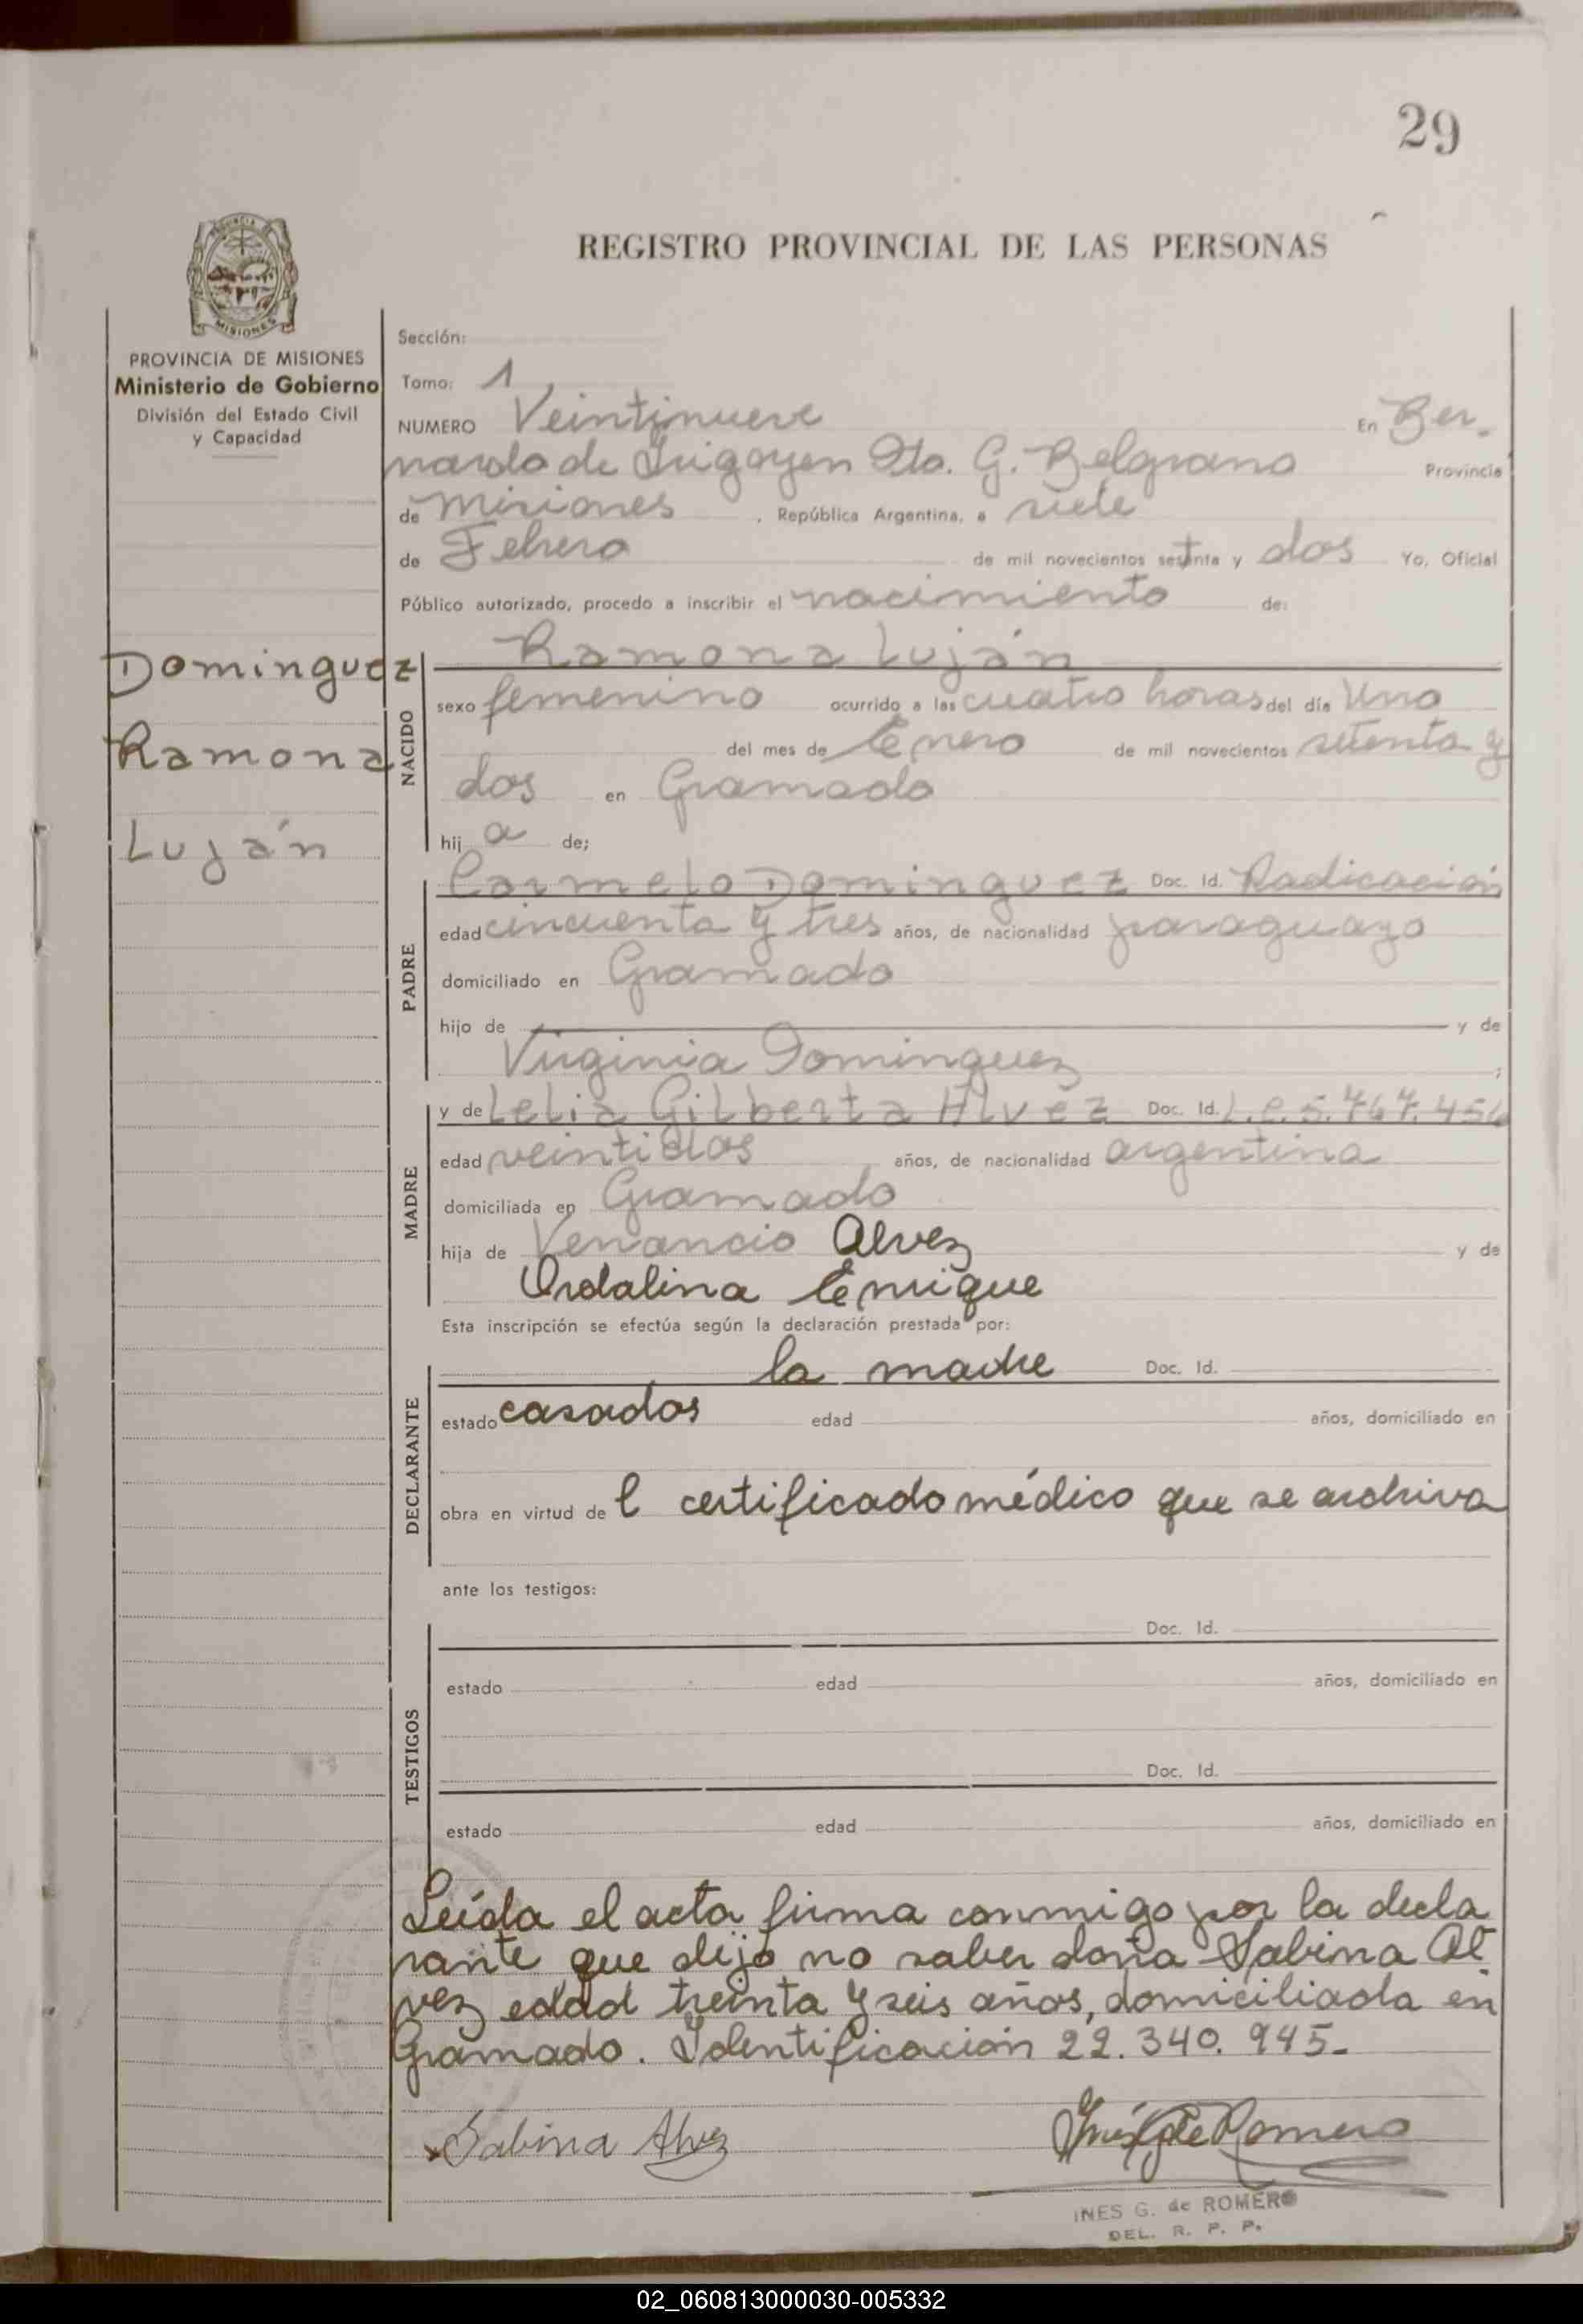 29
REGISTRO PROVINCIAL DE LAS PERSONAS
MISIONES
PROVINCIA DE MISIONES
Ministerio de Gobierno
División del Estado Civil
y Capacidad
Dominguez
Ramona
Luján
Sección:
Tomo: 1
NUMERO Veintinueve En Ber-
nardo de Irigoyen Dto. G. Belgrano Provincia
de Misiones, República Argentina, a siete
de Febrero de mil novecientos setenta y dos Yo, Oficial
Público autorizado, procedo a inscribir el nacimiento de:
NACIDO
Ramona Luján
sexo femenino ocurrido a las cuatro horas del día Uno
del mes de Enero de mil novecientos setenta y
dos en Gramado
hij a de;
PADRE
Carmelo Dominguez Doc. Id. Radicación
edad cincuenta y tres años, de nacionalidad paraguayo
domiciliado en Gramado
hijo de y de
Virginia Dominguez ;
MADRE
y de Lelia Gilberta Alvez Doc. Id. L.C. 5.767.456
edad veintidos años, de nacionalidad argentina
domiciliada en Gramado
hija de Venancio Alvez y de
Ordalina Enrique
Esta inscripción se efectúa según la declaración prestada por:
DECLARANTE
la madre Doc. Id.
estado casados edad años, domiciliado en
obra en virtud de l certificado médico que se archiva
ante los testigos:
TESTIGOS
Doc. Id.
estado edad años, domiciliado en
Doc. Id.
estado edad años, domiciliado en
Leída el acta firma conmigo por la decla
rante que dijo no saber doña Sabina Al
vez edad treinta y seis años, domiciliada en
Gramado. Identificación 22.340.945.-
Sabina Alvez
Inés G de Romero
INES G. de ROMERO
DEL. R. P. P.
02_060813000030-005332